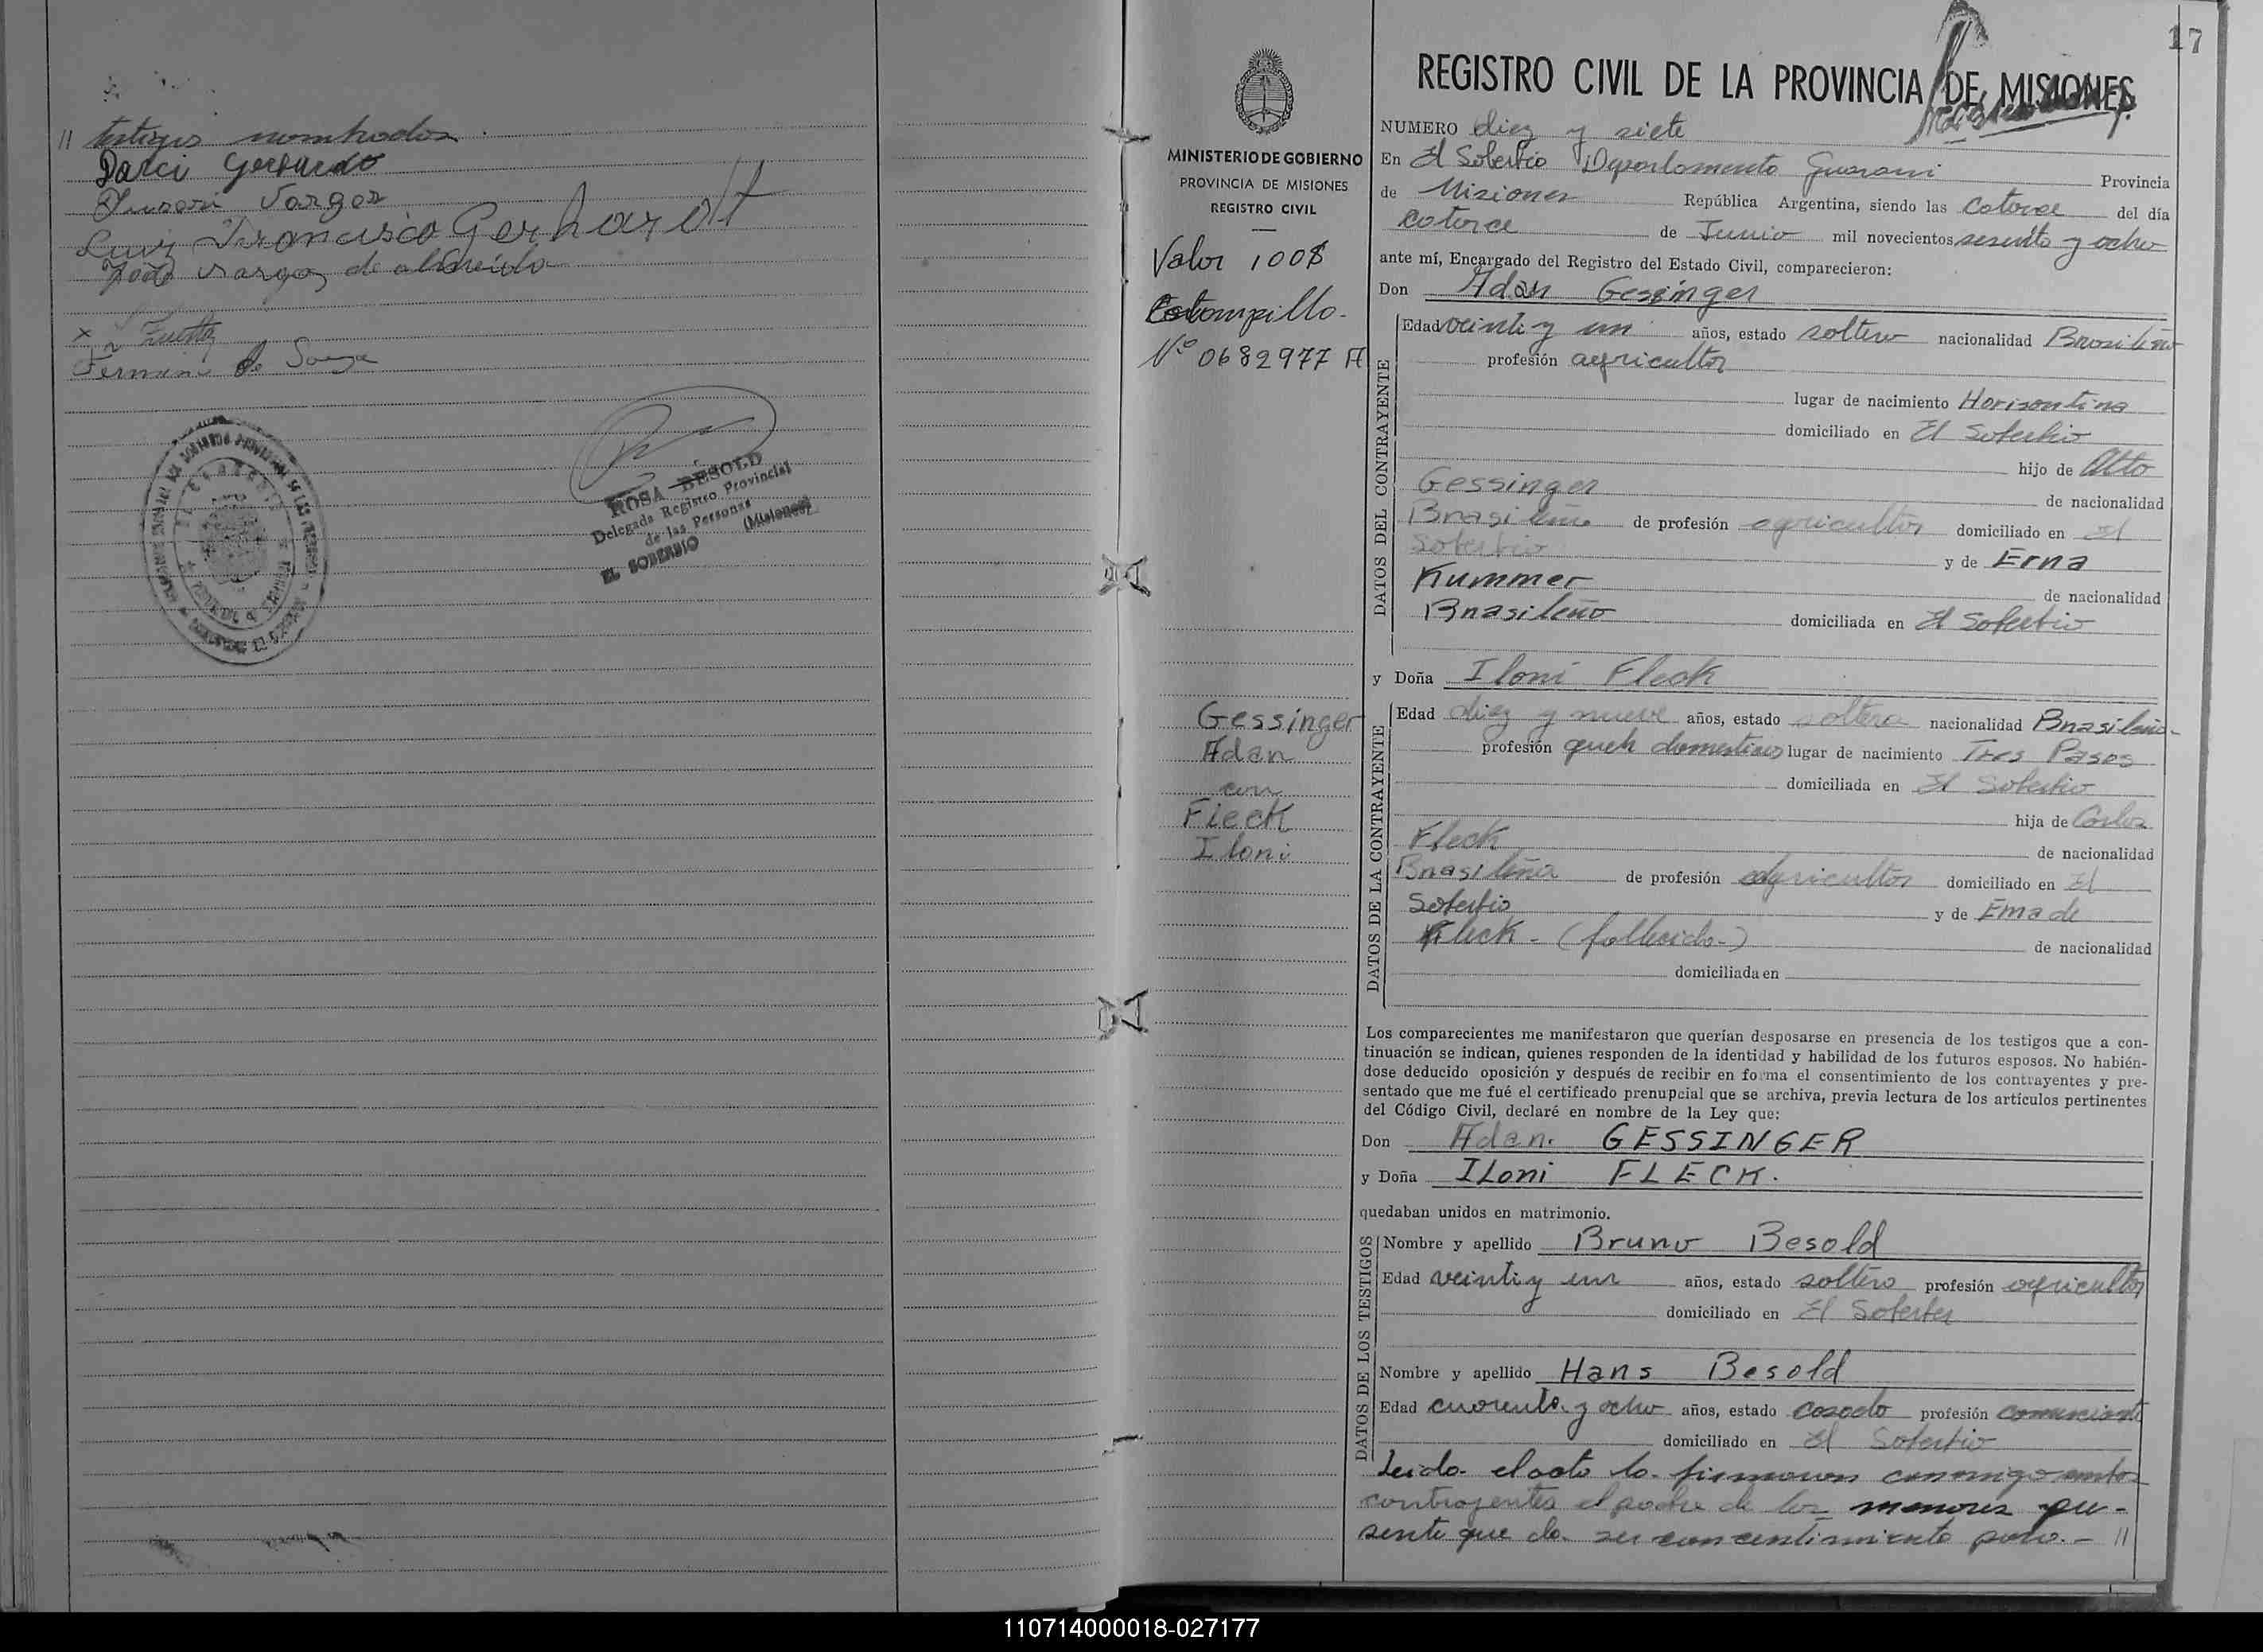 // testigos nombrados
Darci Gerardo
Vargas
Luiz Francisco Gerhardt
João Vargas de almeida
Fermino de Souza
ROSA BESOLD
Delegada Registro Provincial
de las Personas
EL SOBERBIO (Misiones)
17
REGISTRO CIVIL DE LA PROVINCIA DE MISIONES
MINISTERIO DE GOBIERNO
PROVINCIA DE MISIONES
REGISTRO CIVIL
Valor 100$
Estampilla.
Nº 0682977 A
Gessinger
Adan
con
Fleck
Iloni
NUMERO diez y siete
En El Soberbio Departamento Guarani Provincia
de Misiones República Argentina, siendo las catorce del día
catorce de Junio mil novecientos sesenta y ocho
ante mí, Encargado del Registro del Estado Civil, comparecieron:
Don Adan Gessinger
DATOS DEL CONTRAYENTE
Edad veinti y un años, estado soltero nacionalidad Brasileño
profesión agricultor
lugar de nacimiento Horisontina
domiciliado en El Soberbio
hijo de Alto
Gessinger de nacionalidad
Brasileño de profesión agricultor domiciliado en El
Soberbio y de Erna
Kummer de nacionalidad
Brasileño domiciliada en El Soberbio
y Doña Iloni Fleck
DATOS DE LA CONTRAYENTE
Edad diez y nueve años, estado soltera nacionalidad Brasileña-
profesión queh domesticos lugar de nacimiento Tres Pasos
domiciliada en El Soberbio
hija de Carlos
Fleck de nacionalidad
Brasileña de profesión agricultor domiciliado en El
Soberbio y de Ema de
Fleck - (fallecida-) de nacionalidad
domiciliada en
Los comparecientes me manifestaron que querían desposarse en presencia de los testigos que a con-
tinuación se indican, quienes responden de la identidad y habilidad de los futuros esposos. No habién-
dose deducido oposición y después de recibir en forma el consentimiento de los contrayentes y pre-
sentado que me fué el certificado prenupcial que se archiva, previa lectura de los artículos pertinentes
del Código Civil, declaré en nombre de la Ley que:
Don Adan. GESSINGER
y Doña ILoni FLECK.
quedaban unidos en matrimonio.
DATOS DE LOS TESTIGOS
Nombre y apellido Bruno Besold
Edad veinti y un años, estado soltero profesión agricultor
domiciliado en El Soberbio
Nombre y apellido Hans Besold
Edad cuarenta y ocho años, estado casado profesión comerciante
domiciliado en El Soberbio
Leida el acta la firmaron conmigo ambos
contrayentes el padre de los menores pre-
sente que da su concentimiento para.- //
110714000018-027177